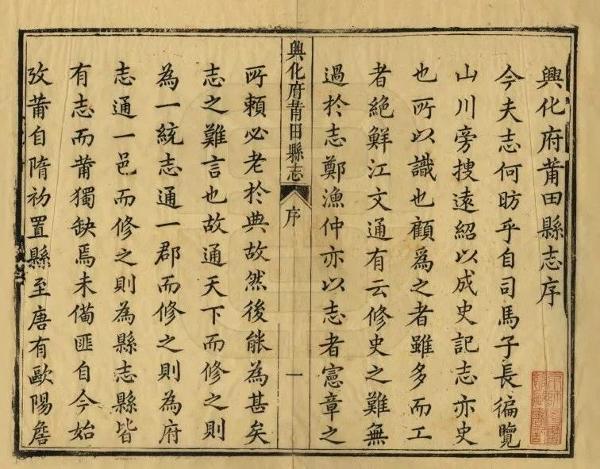 興化府莆田縣志序
今夫志何昉乎自司馬子長徧覽
山川旁搜遠紹以成史記志亦史
也所以識也顧爲之者雖多而工
者絶鮮江文通有云修史之難無
過於志鄭漁仲亦以志者憲章之
興化府莆田縣志
序
一
所賴必老於典故然後能為甚矣
志之難言也故通天下而修之則
為一統志通一郡而修之則為府
志通一邑而修之則為縣志縣皆
有志而莆獨缺焉未備匪自今始
攷莆自隋初置縣至唐有歐陽詹